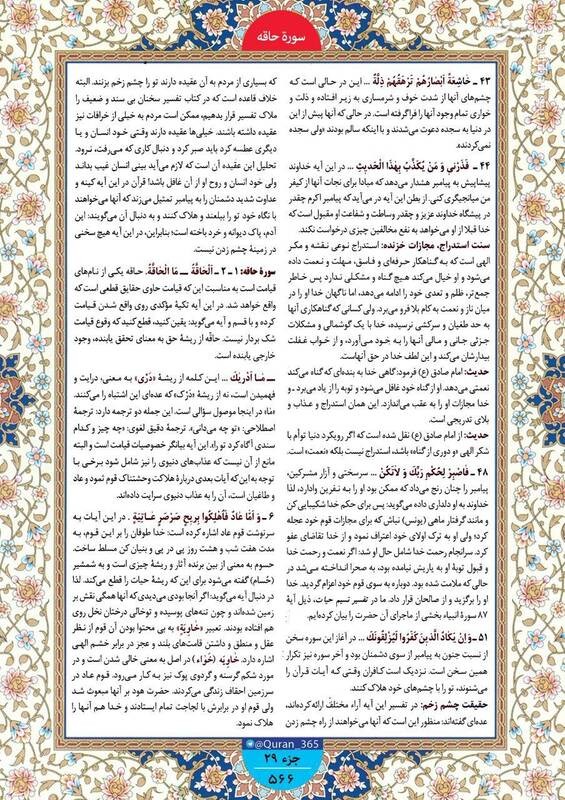 سورة حاقه
۴۳ ـ خَاشِعَةً أَبْصَارُهُمْ تَرْهَقُهُمْ ذِلَّةٌ ... این در حالی است که
چشم‌های آنها از شدت خوف و شرمساری به زیر افتاده و ذلت و
خواری تمام وجود آنها را فراگرفته است. در حالی که آنها پیش از این
در دنیا به سجده دعوت می‌شدند و با اینکه سالم بودند ولی سجده
نمی‌کردند.
۴۴ ـ فَذَرْنِي وَ مَنْ يُكَذِّبُ بِهَذَا الْحَدِيثِ ... در این آیه خداوند
پیشاپیش به پیامبر هشدار می‌دهد که مبادا برای نجات آنها از کیفر
من میانجیگری کنی. از بطن این آیه در می‌آید که پیامبر اکرم چقدر
در پیشگاه خداوند عزیز و چقدر وساطت و شفاعت او مقبول است که
خدا قبلا از او می‌خواهد به نفع مخالفین چیزی درخواست نکند.
سنت استدراج، مجازات خزنده: استدراج نوعی نقشه و مکر
الهی است که به گناهکار حرفه‌ای و فاسق، مهلت و نعمت داده
می‌شود و او خیال می‌کند هیچ گناه و مشکلی ندارد پس خاطر
جمع‌تر، ظلم و تعدی خود را ادامه می‌دهد، اما ناگهان خدا او را در
میان ناز و نعمت به کام بلا فرو می‌برد. ولی کسانی که گناهکاری آنها
به حد طغیان و سرکشی نرسیده، خدا با یک گوشمالی و مشکلات
جزئی جانی و مالی آنها را به خود می‌آورد، و از خواب غفلت
بیدارشان می‌کند و این لطف خدا در حق آنهاست.
حدیث: امام صادق (ع) فرمود: گاهی خدا به بنده‌ای که گناه می‌کند
نعمتی می‌دهد. او از گناه خود غافل می‌شود و توبه را از یاد می‌برد ـ و
خدا مجازات او را به عقب می‌اندازد. این همان استدراج و عذاب و
بلای تدریجی است.
حدیث: از امام صادق (ع) نقل شده است که اگر رویکرد دنیا توأم با
شکر الهی (و دوری از گناه) باشد، استدراج نیست بلکه «نعمت» است.
۴۸ ـ فَاصْبِرْ لِحُكْمِ رَبِّكَ وَ لَاتَكُنْ ... سرسختی و آزار مشرکین،
پیامبر را چنان رنج می‌داد که ممکن بود او را به نفرین وادارد، لذا
خداوند به او دلداری داده و می‌گوید: پس برای حکم خدا شکیبایی کن
و مانند گرفتار ماهی (یونس) نباش که برای مجازات قوم خود عجله
کرد؛ ولی او به ترک اولای خود اعتراف نمود و از خدا تقاضای عفو
کرد. سرانجام رحمت خدا شامل حال او شد: اگر نعمت و رحمت خدا
و قبول توبۀ او به یاریش نیامده بود، به صحرا انداخته می‌شد در
حالی که ملامت شده بود. دوباره به سوی قوم خود اعزام گردید. خدا
او را برگزید و از صالحان قرار داد. ما در تفسیر نسیم حیات، ذیل آیۀ
۸۷ سورۀ انبیاء بخشی از ماجرای آن حضرت را بیان کرده‌ایم.
۵۱ ـ وَ إِنْ يَكَادُ الَّذِينَ كَفَرُوا لَيُزْلِقُونَكَ ... در آغاز این سوره سخن
از نسبت جنون به پیامبر از سوی دشمنان بود و آخر سوره نیز تکرار
همین سخن است. نزدیک است کافران وقتی که آیات قرآن را
می‌شنوند، تو را با چشم‌های خود هلاک کنند.
حقیقت چشم زخم: در تفسیر این آیه آراء مختلف ارائه کرده‌اند،
عده‌ای گفته‌اند: منظور این است که آنها می‌خواهند از راه چشم زدن
که بسیاری از مردم به آن عقیده دارند تو را چشم زخم بزنند. البته
خلاف قاعده است که در کتاب تفسیر سخنان بی سند و ضعیف را
ملاک تفسیر قرار بدهیم، ممکن است مردم به خیلی از خرافات نیز
عقیده داشته باشند. خیلی‌ها عقیده دارند وقتی خود انسان و یا
دیگری عطسه کرد باید صبر کرد و دنبال کاری که می‌رفت، نرود.
تحلیل این عقیده آن است که لازم می‌آید بینی انسان غیب بداند
ولی خود انسان و روح او از آن غافل باشد! قرآن در این آیه کینه و
عداوت شدید دشمنان را به پیامبر تمثیل می‌زند که آنها می‌خواهند
با نگاه خود تو را ببلعند و هلاک کنند و به دنبال آن می‌گویند: این
آدم، پاک دیوانه و خرد باخته است؛ بنابراین، در این آیه هیچ سخنی
در زمینۀ چشم زدن نیست.
سورۀ حاقه: ۱ ـ ۲ ـ اَلْحَاقَّةُ ـ مَا الْحَاقَّةُ. حاقه یکی از نام‌های
قیامت است به مناسبت این که قیامت حاوی حقایق قطعی است که
واقع خواهد شد. در این آیه تکیۀ مؤکدی روی واقع شدن قیامت
کرده و با قسم و آیه می‌گوید: یقین کنید، قطع کنید که وقوع قیامت
شک بردار نیست. حاقّه از ریشۀ حق به معنای تحقق یابنده، وجود
خارجی یابنده است.
ـ مَا أَدْرَيكَ ... این کلمه از ریشۀ «دَرْی» به معنی، درایت و
فهمیدن است، نه از ریشۀ «دَرْک» که عده‌ای این اشتباه را می‌کنند.
«ما» در اینجا موصول سؤالی است. این جمله دو ترجمه دارد: ترجمۀ
اصطلاحی: «تو چه می‌دانی»، ترجمۀ دقیق لغوی: «چه چیز و کدام
سندی آگاه کرد تو را». این آیه بیانگر خصوصیات قیامت است و البته
مانع از آن نیست که عذاب‌های دنیوی را نیز شامل شود برخی با
توجه به این که آیات بعدی دربارۀ هلاکت وحشتناک قوم ثمود و عاد
و طاغیان است، آن را به عذاب دنیوی سرایت داده‌اند.
۶ ـ وَ أَمَّا عَادٌ فَأُهْلِكُوا بِرِيحٍ صَرْصَرٍ عَاتِيَةٍ . در این آیات به
سرنوشت قوم عاد اشاره کرده است: خدا طوفان را بر این قوم، به
مدت هفت شب و هشت روز پی در پی و بنیان کن مسلط ساخت.
حسوم به معنی از بین برنده آثار و ریشۀ چیزی است و به شمشیر
(حُسام) گفته می‌شود برای این که ریشۀ حیات را قطع می‌کند. لذا
در دنبال آیه می‌گوید: اگر آنجا بودی می‌دیدی که آنها همگی نقش بر
زمین شده‌اند و چون تنه‌های پوسیده و توخالی درختان نخل روی
هم افتاده بودند. تعبیر «خَاوِيَة» به بی محتوا بودن آن قوم از نظر
عقل و منطق و داشتن قامت‌های بلند و عجز در برابر خشم الهی
اشاره دارد. خَاوِيَه (خَواء) در اصل به معنی خالی شدن است و در
مورد شکم گرسنه و گردوی پوک نیز به کار می‌رود. قوم عاد در
سرزمین احقاف زندگی می‌کردند. حضرت هود بر آنها مبعوث شد
ولی قوم او در برابرش با لجاجت تمام ایستادند و خدا هم آنها را
هلاک نمود.
@Quran_365
جزء ۲۹
۵۶۶